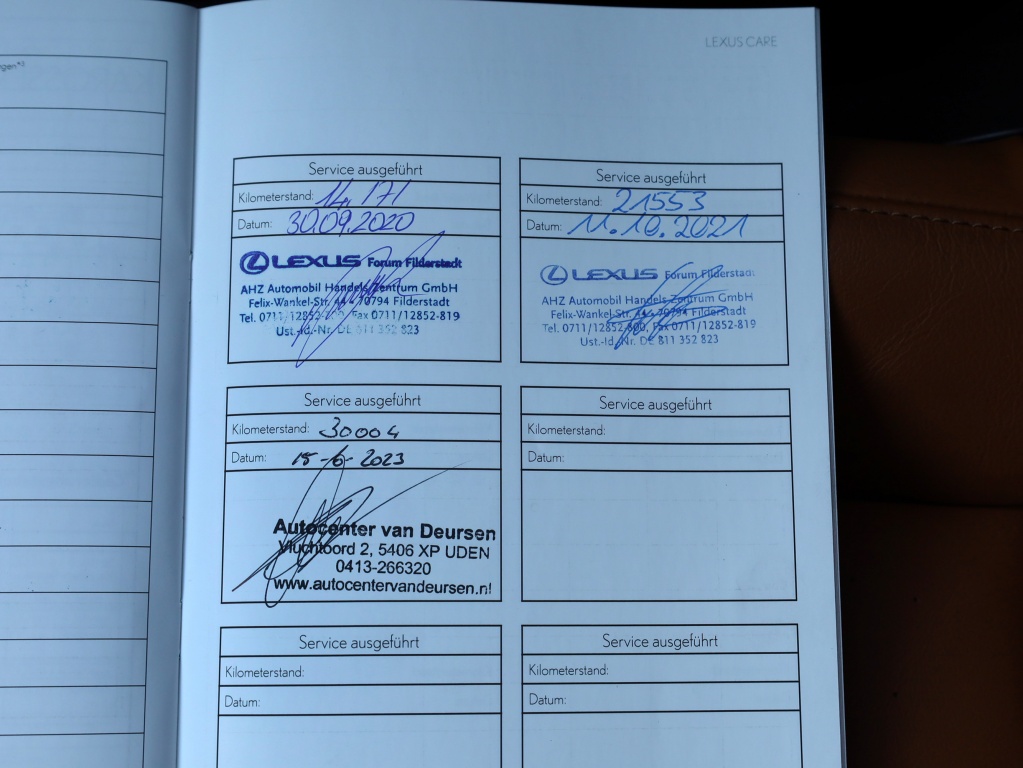 ngen*³
LEXUS CARE
Service ausgeführt
Kilometerstand: 14.171
Datum: 30.09.2020
LEXUS Forum Filderstadt
AHZ Automobil Handels Zentrum GmbH
Felix-Wankel-Str. 44 - 70794 Filderstadt
Tel. 0711/12852-800, Fax 0711/12852-819
Ust.-Id.-Nr. DE 811 352 823
Service ausgeführt
Kilometerstand: 21553
Datum: 11.10.2021
LEXUS Forum Filderstadt
AHZ Automobil Handels Zentrum GmbH
Felix-Wankel-Str. 44 - 70794 Filderstadt
Tel. 0711/12852-800, Fax 0711/12852-819
Ust.-Id. Nr. DE 811 352 823
Service ausgeführt
Kilometerstand: 30004
Datum: 15-6-2023
Autocenter van Deursen
Vluchtoord 2, 5406 XP UDEN
0413-266320
www.autocentervandeursen.nl
Service ausgeführt
Kilometerstand:
Datum:
Service ausgeführt
Kilometerstand:
Datum:
Service ausgeführt
Kilometerstand:
Datum: